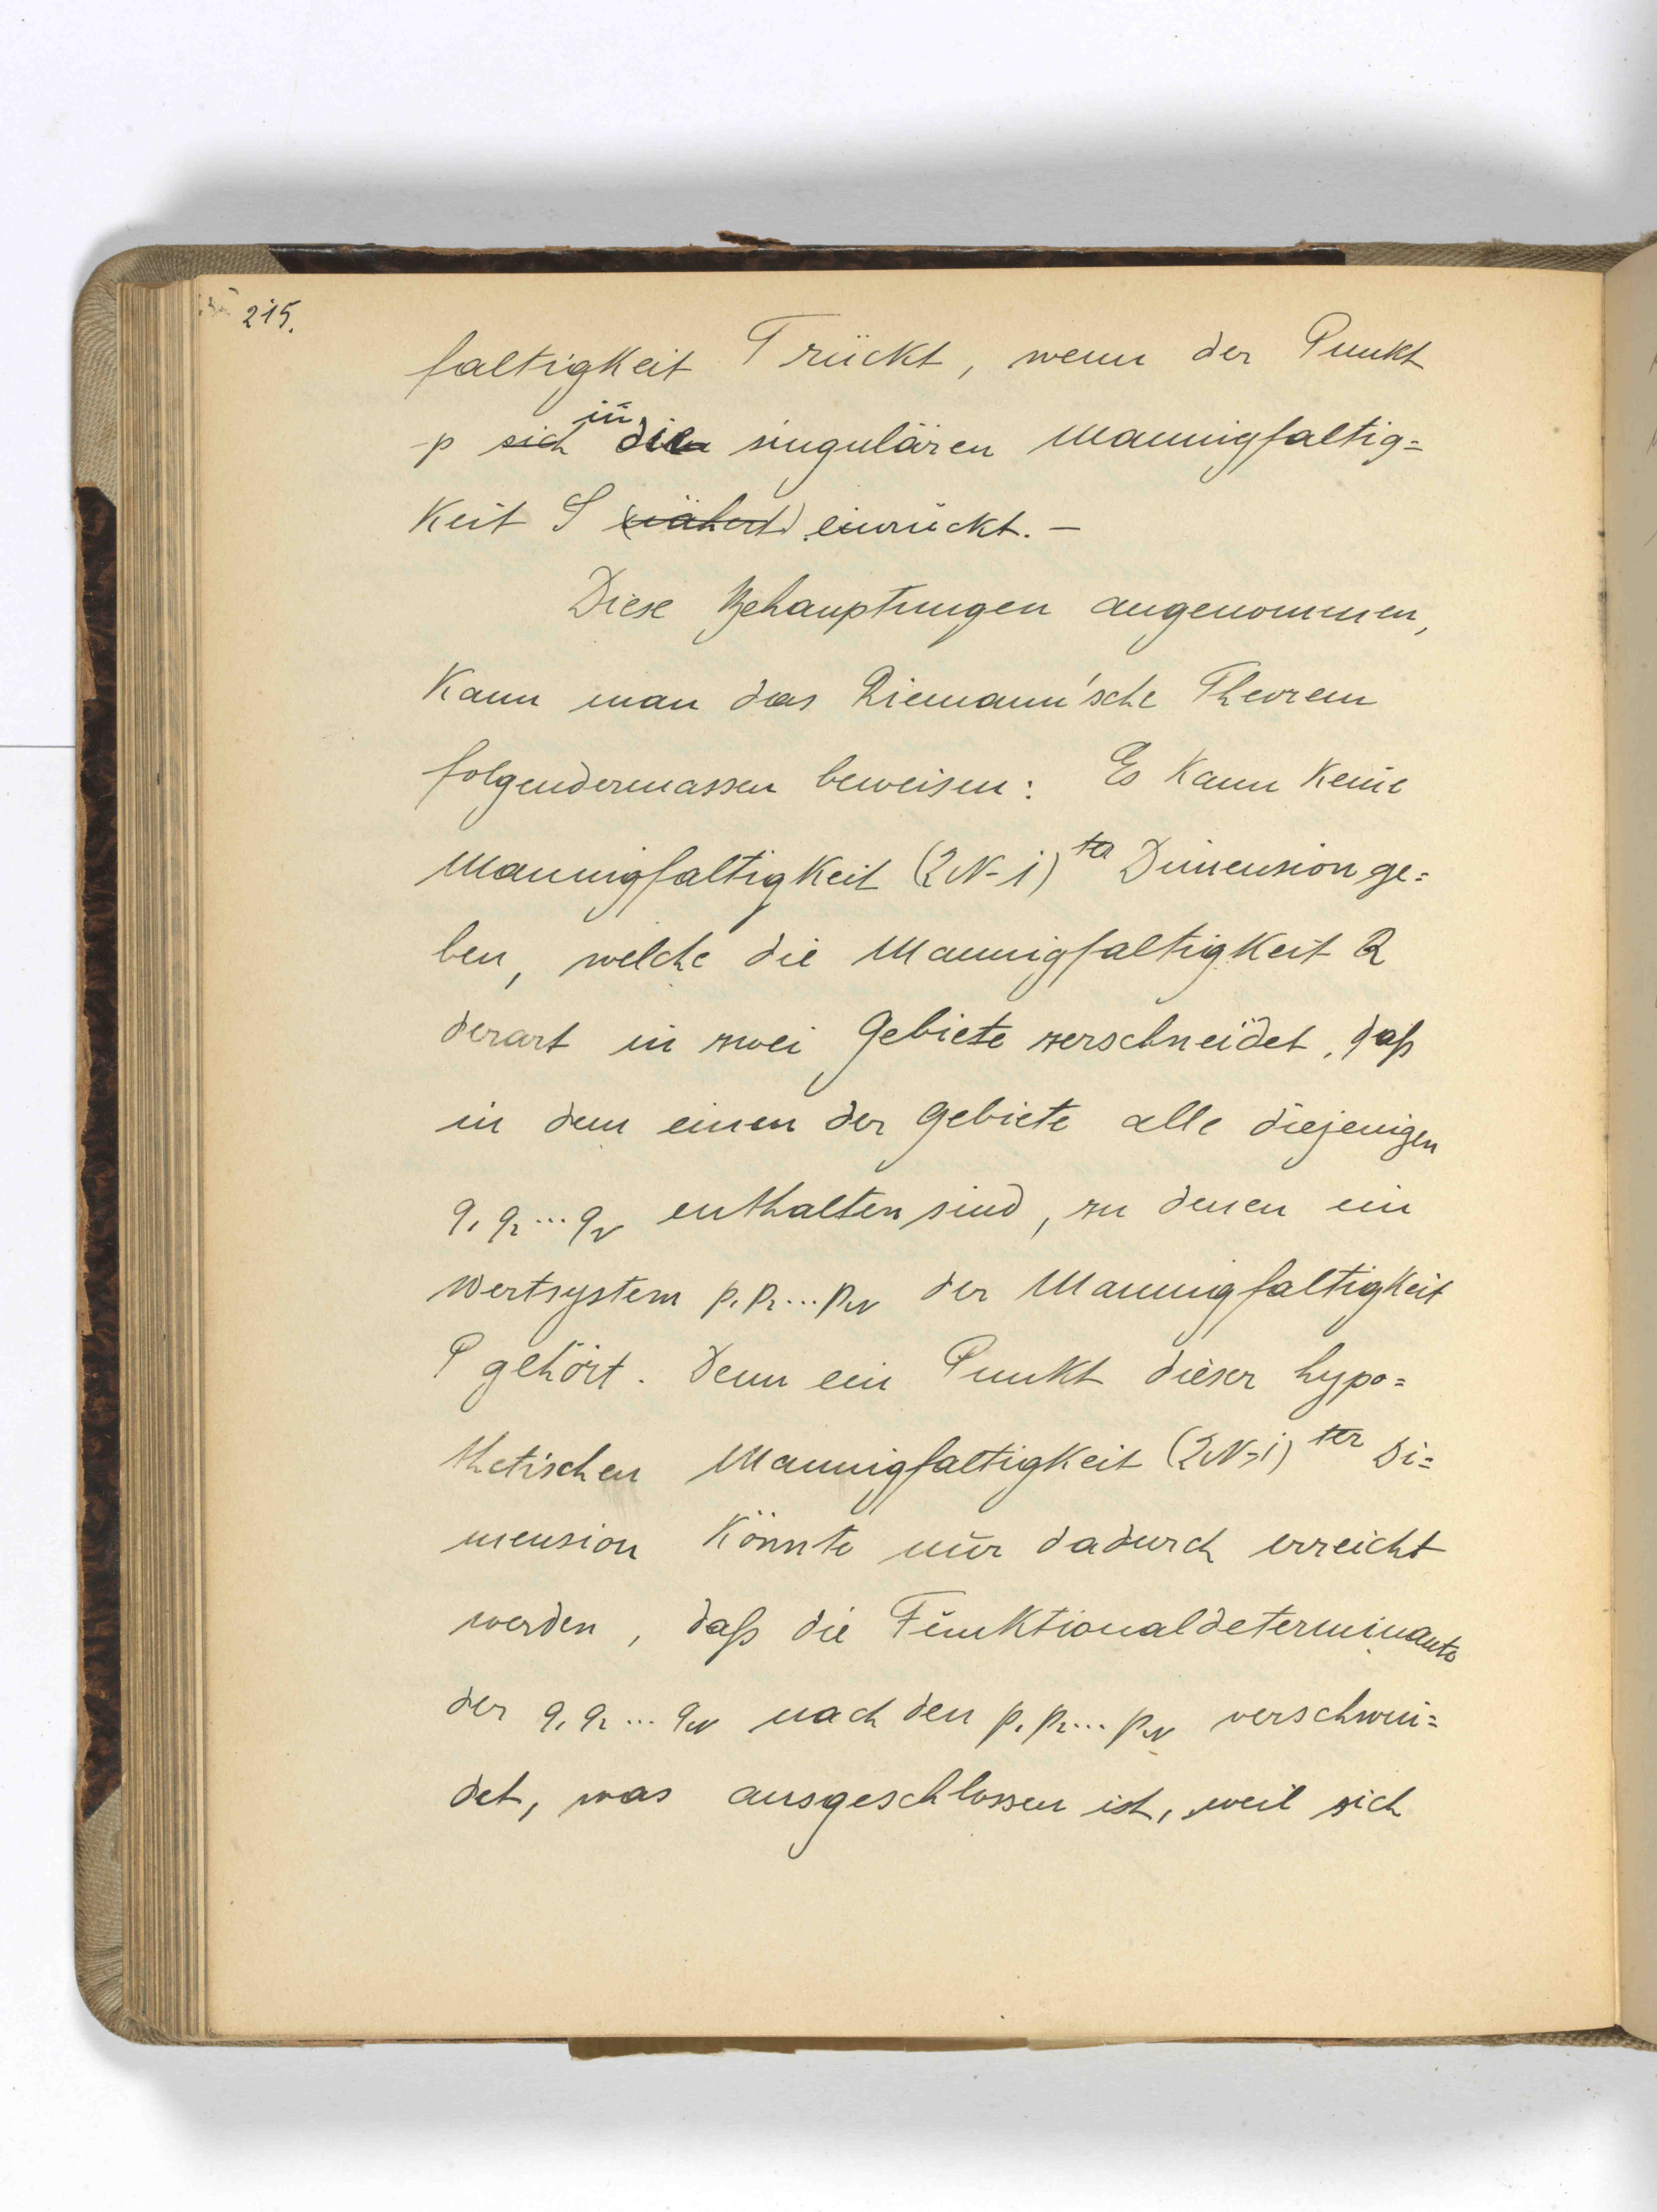 215.
faltigkeit T rückt, wenn der Punkt
p sich in die singulären Mannigfaltig=
keit S (nähert) einrückt. –
Diese Behauptungen angenommen,
kann man das Riemann'sche Theorem
folgendermassen beweisen: Es kann keine
Mannigfaltigkeit (2N-1)ter Dimension ge=
ben, welche die Mannigfaltigkeit Q
derart in zwei Gebiete zerschneidet, daß
in dem einen der Gebiete alle diejenigen
q₁ q₂ ... q_N enthalten sind, zu denen ein
Wertsystem p₁ p₂ ... p_N der Mannigfaltigkeit
P gehört. Denn ein Punkt dieser hypo=
thetischen Mannigfaltigkeit (2N-1)ter Di=
mension könnte nur dadurch erreicht
werden, daß die Funktionaldeterminante
der q₁ q₂ ... q_N nach den p₁ p₂ ... p_N verschwin=
det, was ausgeschlossen ist, weil sich